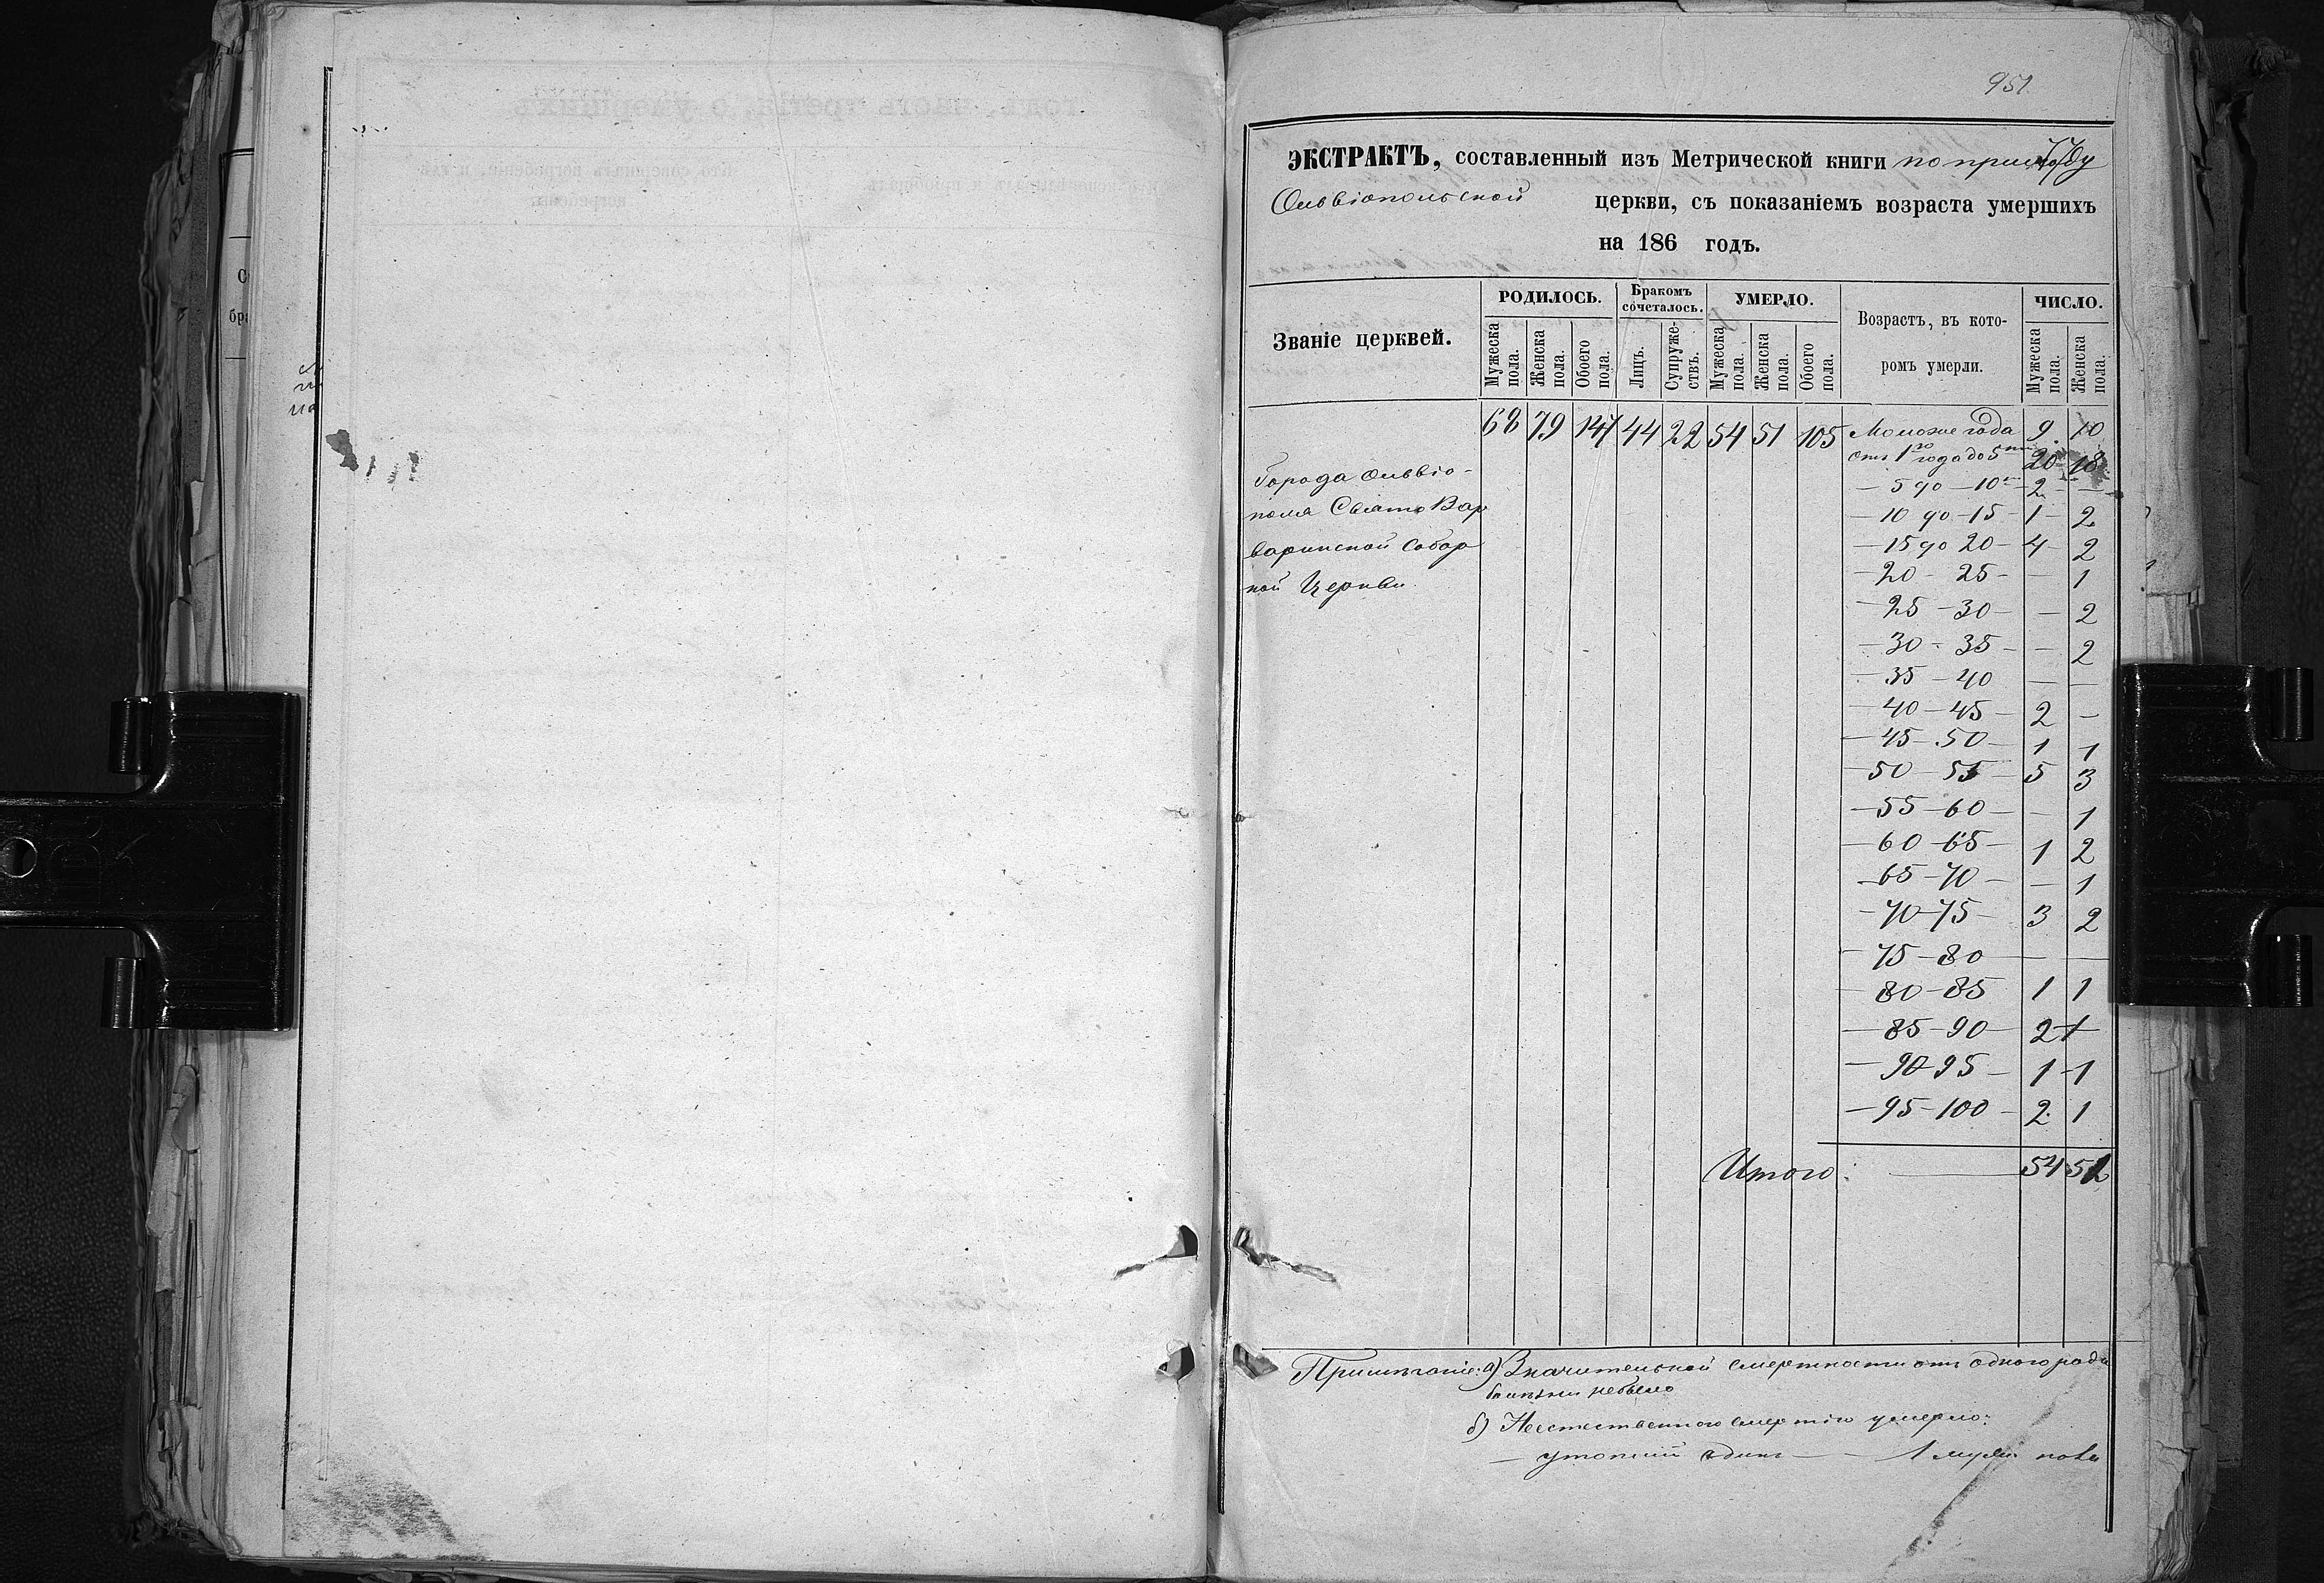 951
ЭКСТРАКТЪ, составленный изъ Метрической книги по приходу
Ольвіопольской церкви, съ показаніемъ возраста умершихъ
на 186 годъ.
Званіе церквей.
РОДИЛОСЬ.
Бракомъ сочеталось.
УМЕРЛО.
Возрастъ, въ кото-
ромъ умерли.
ЧИСЛО.
Мужеска пола.
Женска пола.
Обоего пола.
Лицъ.
Супруже-ствъ.
Мужеска пола.
Женска пола.
Обоего пола.
Мужеска пола.
Женска пола.
68 79 147 44 22 54 51 105 Моложе года 9 10
отъ 1го года до 5ти 20 18
Города Ольвіо-
— 5 до — 10 — 2 — —
поля Свято Вар
— 10 до — 15 — 1 — 2
варинской Собор
— 15 до 20 — 4 — 2
ной Церкви.
— 20 — 25 — — 1
— 25 — 30 — — 2
— 30 — 35 — — 2
— 35 — 40 — —
— 40 — 45 — 2 —
— 45 — 50 — 1 1
— 50 — 55 — 5 3
— 55 — 60 — — 1
— 60 — 65 — 1 2
— 65 — 70 — — 1
— 70 — 75 — 3 2
— 75 — 80 — —
— 80 — 85 1 1
— 85 — 90 — 2 1
— 90 — 95 — 1 1
— 95 — 100 — 2 1
Итого: — 54
Примѣчаніе: а) Значительной смертности отъ одного рода
болѣзни небыло
б) Неестественною смертію умерло:
— утопшій одинъ — — 1 муж. пола